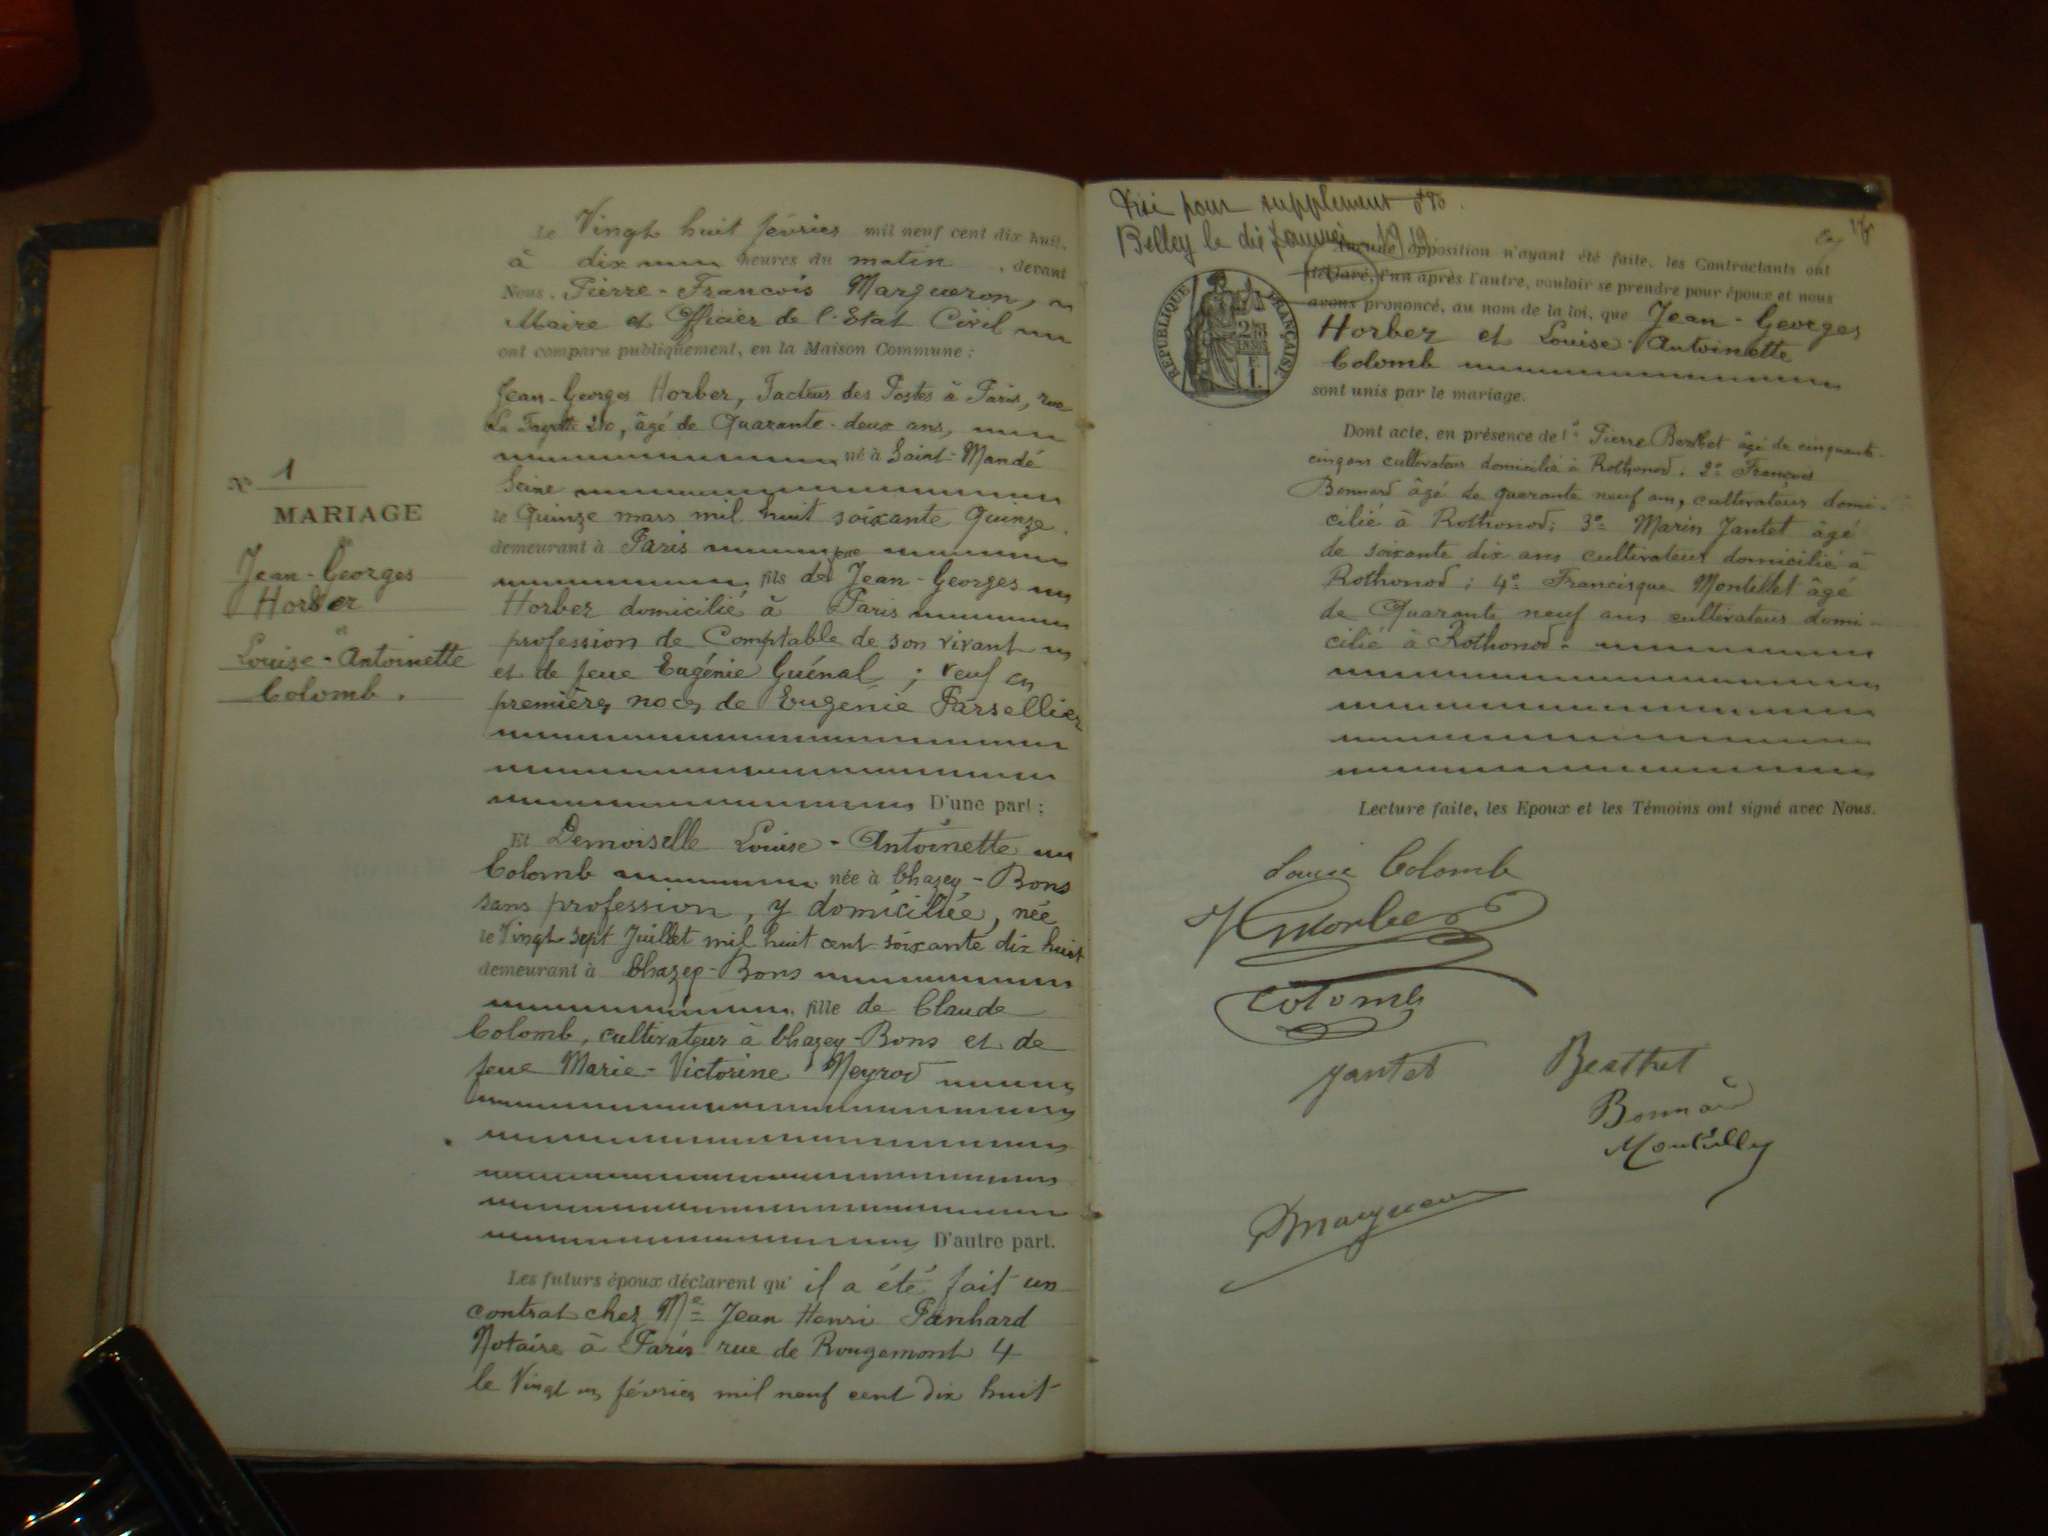 N° 1
MARIAGE
Jean-Georges
Horber
et
Louise-Antoinette
Colomb.
Le Vingt huit février mil neuf cent dix huit,
à dix heures du matin, devant
Nous, Pierre-François Margueron,
Maire et Officier de l'Etat Civil
ont comparu publiquement, en la Maison Commune :
Jean-Georges Horber, Facteur des Postes à Paris, rue
La Fayette 210, âgé de Quarante-deux ans,
né à Saint-Mandé
Seine
le Quinze mars mil huit soixante Quinze.
demeurant à Paris
fils de feu Jean-Georges
Horber domicilié à Paris
profession de Comptable de son vivant
et de feue Eugénie Guénal ; veuf en
premières noces de Eugenie Parsellier
D'une part ;
Et Demoiselle Louise-Antoinette
Colomb née à Chazey-Bons
sans profession, y domiciliée, née
le Vingt sept Juillet mil huit cent soixante dix huit
demeurant à Chazey-Bons
fille de Claude
Colomb, cultivateur à Chazey-Bons et de
feue Marie-Victorine Neyrod
D'autre part.
Les futurs époux déclarent qu'il a été fait un
contrat chez Me Jean Henri Panhard
Notaire à Paris rue de Rougemont 4
le Vingt un février mil neuf cent dix huit
Visé pour supplément
Belley le dix Janvier 1919
RÉPUBLIQUE FRANÇAISE
Aucune opposition n'ayant été faite, les Contractants ont
déclaré, l'un après l'autre, vouloir se prendre pour époux et nous
avons prononcé, au nom de la loi, que Jean-Georges
Horber et Louise-Antoinette
Colomb
sont unis par le mariage.
Dont acte, en présence de 1° Pierre Berthet âgé de cinquante-
cinq ans cultivateur domicilié à Rothonod. 2° François
Bonnard âgé de quarante neuf ans, cultivateur domi-
cilié à Rothonod ; 3° Marin Jantet âgé
de soixante dix ans cultivateur domicilié à
Rothonod ; 4° Francisque Montillet âgé
de Quarante neuf ans cultivateur domi-
cilié à Rothonod.
Lecture faite, les Epoux et les Témoins ont signé avec Nous.
Louise Colomb
Horber
Colomb
Jantet Berthet
Bonnard
Margueron